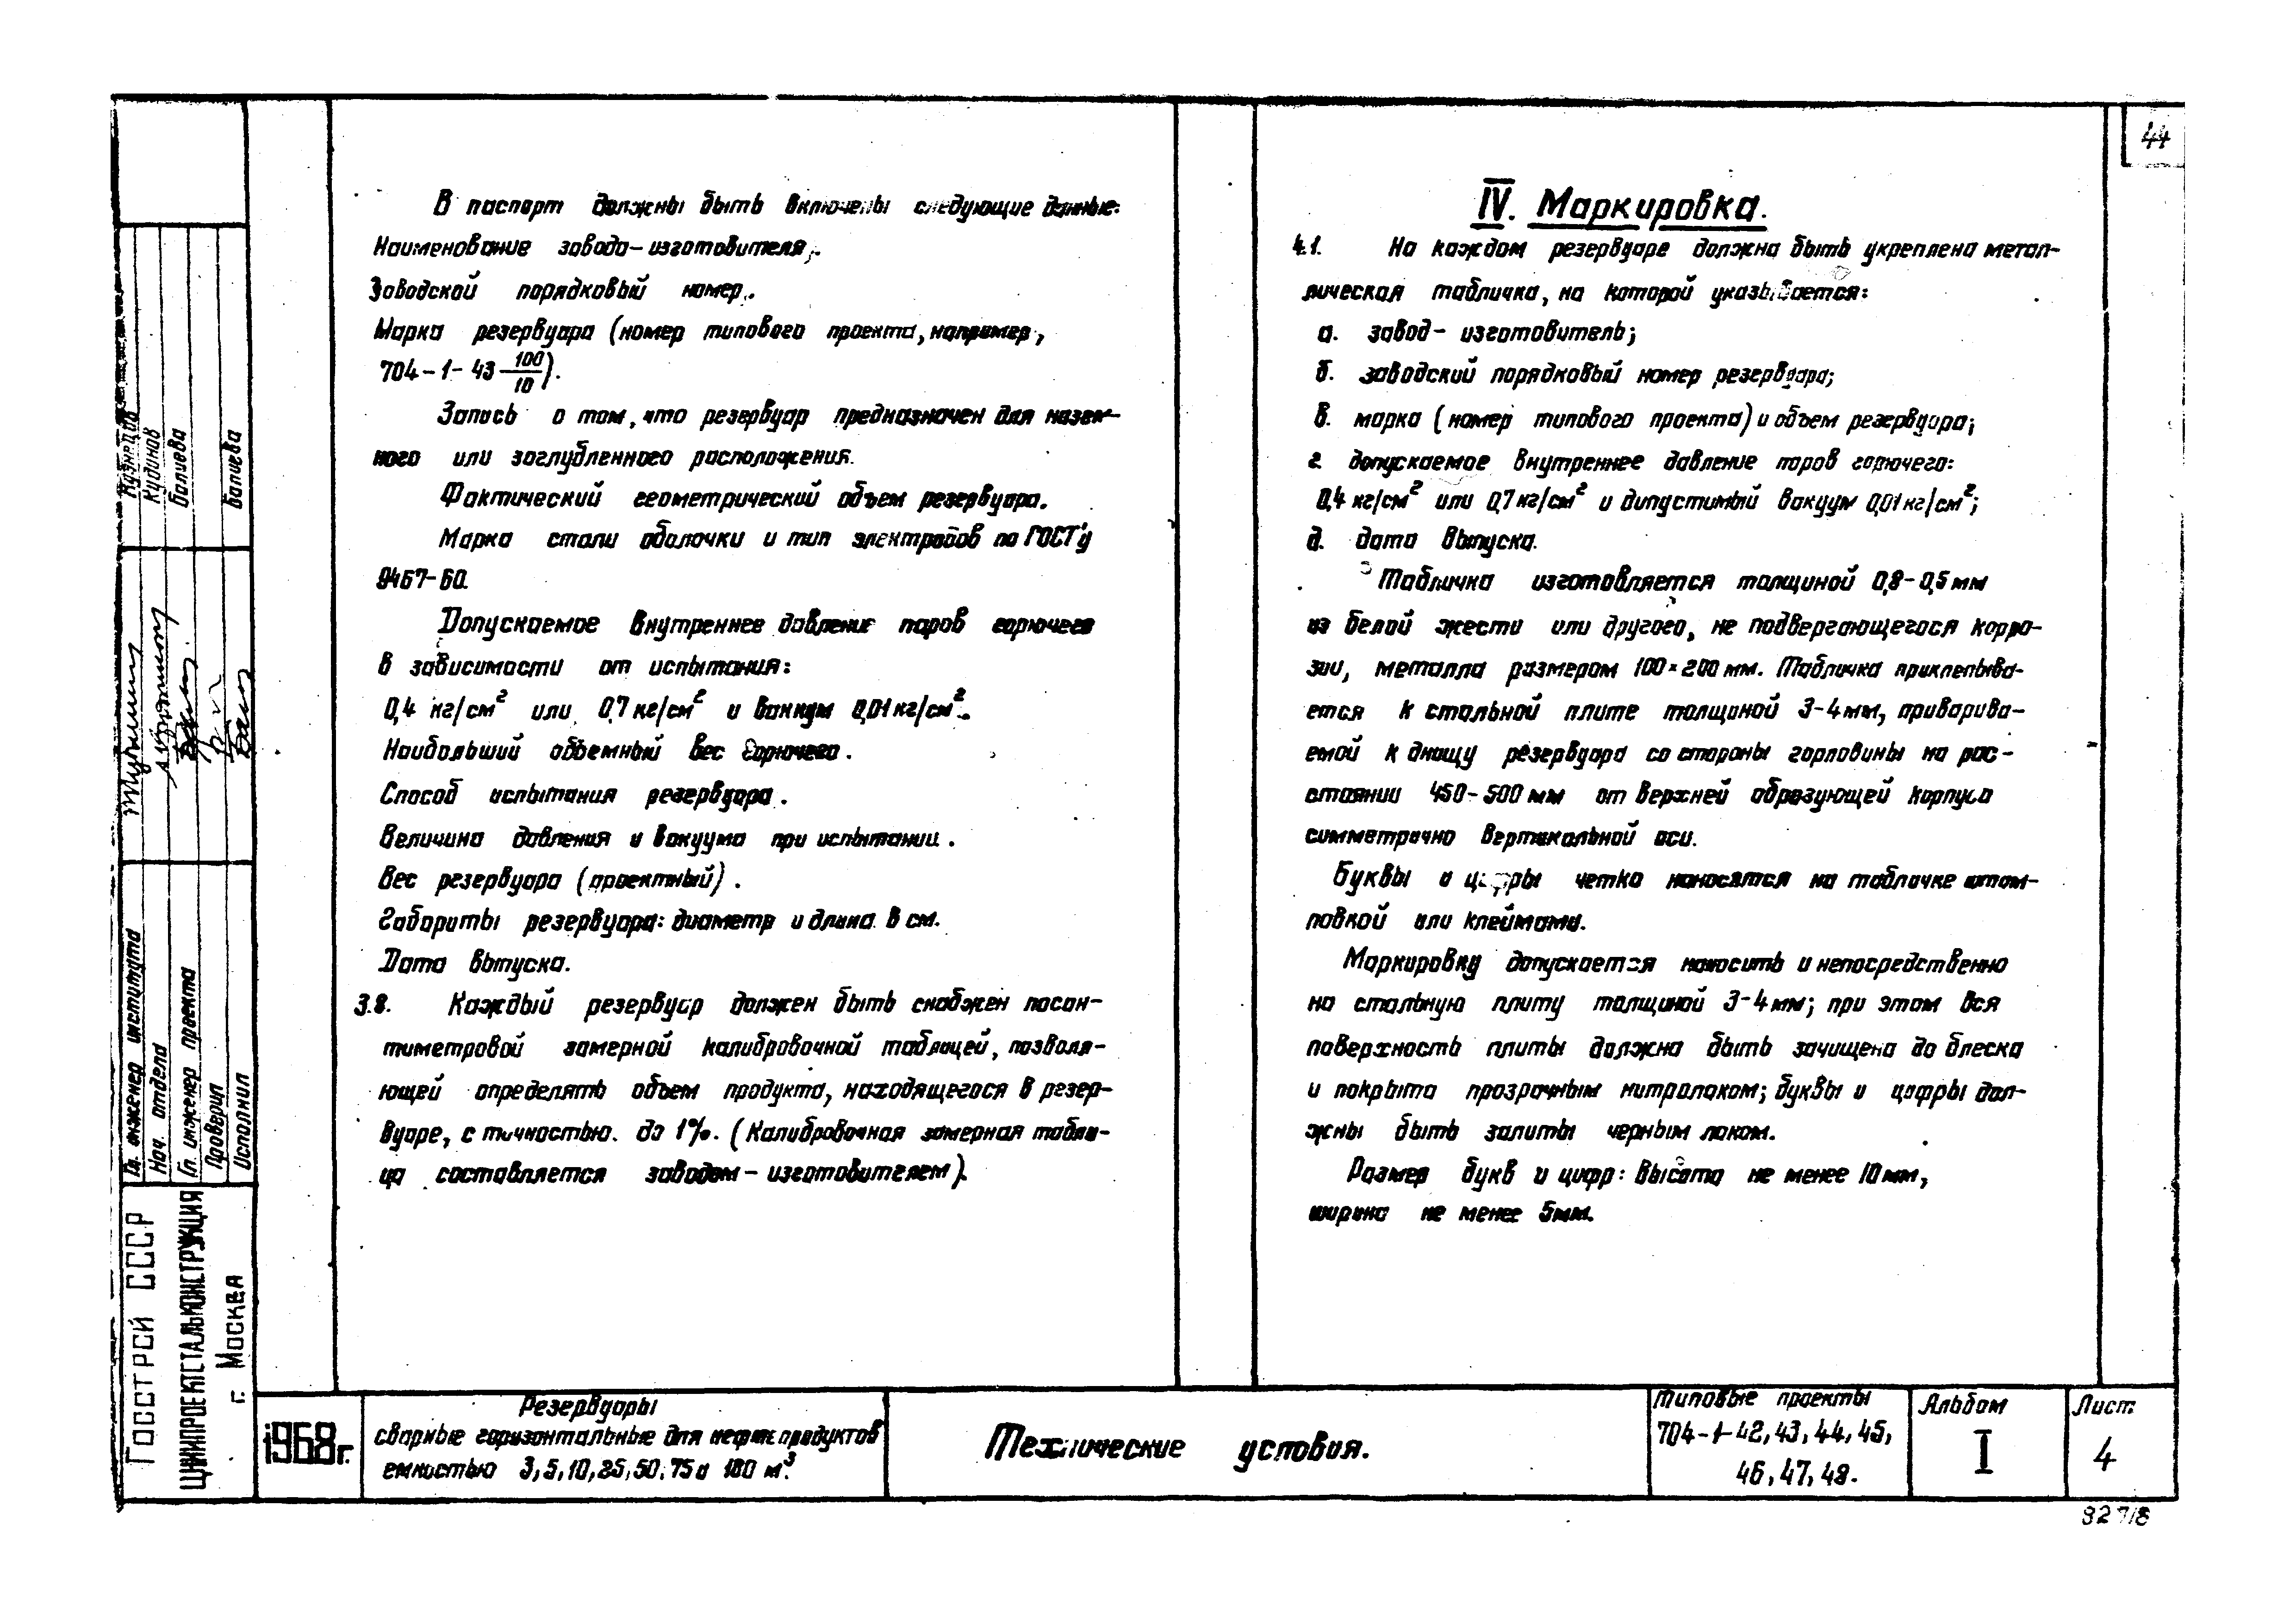 44
В паспорт должны быть включены следующие данные:
Наименование завода-изготовителя;.
Заводской порядковый номер.
Марка резервуара (номер типового проекта, например,
704-1-43 100/10).
Запись о том, что резервуар предназначен для назем-
ного или заглубленного расположения.
Фактический геометрический объем резервуара.
Марка стали оболочки и тип электродов по ГОСТ'у
9467-60.
Допускаемое внутреннее давление паров горючего
в зависимости от испытания:
0,4 кг/см² или 0,7 кг/см² и вакуум 0,01 кг/см².
Наибольший объемный вес горючего.
Способ испытания резервуара.
Величина давления и вакуума при испытании.
Вес резервуара (проектный).
Габариты резервуара: диаметр и длина в см.
Дата выпуска.
3.8. Каждый резервуар должен быть снабжен посан-
тиметровой замерной калибровочной таблицей, позволя-
ющей определять объем продукта, находящегося в резер-
вуаре, с точностью до 1%. (Калибровочная замерная табли-
ца составляется заводом-изготовителем).
IV. Маркировка.
4.1. На каждом резервуаре должна быть укреплена метал-
лическая табличка, на которой указывается:
а. завод-изготовитель;
б. заводский порядковый номер резервуара;
в. марка (номер типового проекта) и объем резервуара;
г. допускаемое внутреннее давление паров горючего:
0,4 кг/см² или 0,7 кг/см² и допустимый вакуум 0,01 кг/см²;
д. дата выпуска.
Табличка изготовляется толщиной 0,8-0,5 мм
из белой жести или другого, не подвергающегося корро-
зии, металла размером 100×200 мм. Табличка приклепыва-
ется к стальной плите толщиной 3-4 мм, приварива-
емой к днищу резервуара со стороны горловины на рас-
стоянии 450-500 мм от верхней образующей корпуса
симметрично вертикальной оси.
Буквы и цифры четко наносятся на табличке штам-
повкой или клеймами.
Маркировку допускается наносить и непосредственно
на стальную плиту толщиной 3-4 мм; при этом вся
поверхность плиты должна быть зачищена до блеска
и покрыта прозрачным нитролаком; буквы и цифры дол-
жны быть залиты черным лаком.
Размер букв и цифр: высота не менее 10 мм,
ширина не менее 5 мм.
Гл. инженер института
Нач. отдела Кудинов
Гл. инженер проекта Балиева
Проверил
Исполнил Балиева
Госстрой СССР
ЦНИИПРОЕКТСТАЛЬКОНСТРУКЦИЯ
г. Москва
1968 г.
Резервуары
сварные горизонтальные для нефтепродуктов
емкостью 3, 5, 10, 25, 50, 75 и 100 м³.
Технические условия.
Типовые проекты
704-1-42, 43, 44, 45,
46, 47, 48.
Альбом
I
Лист
4